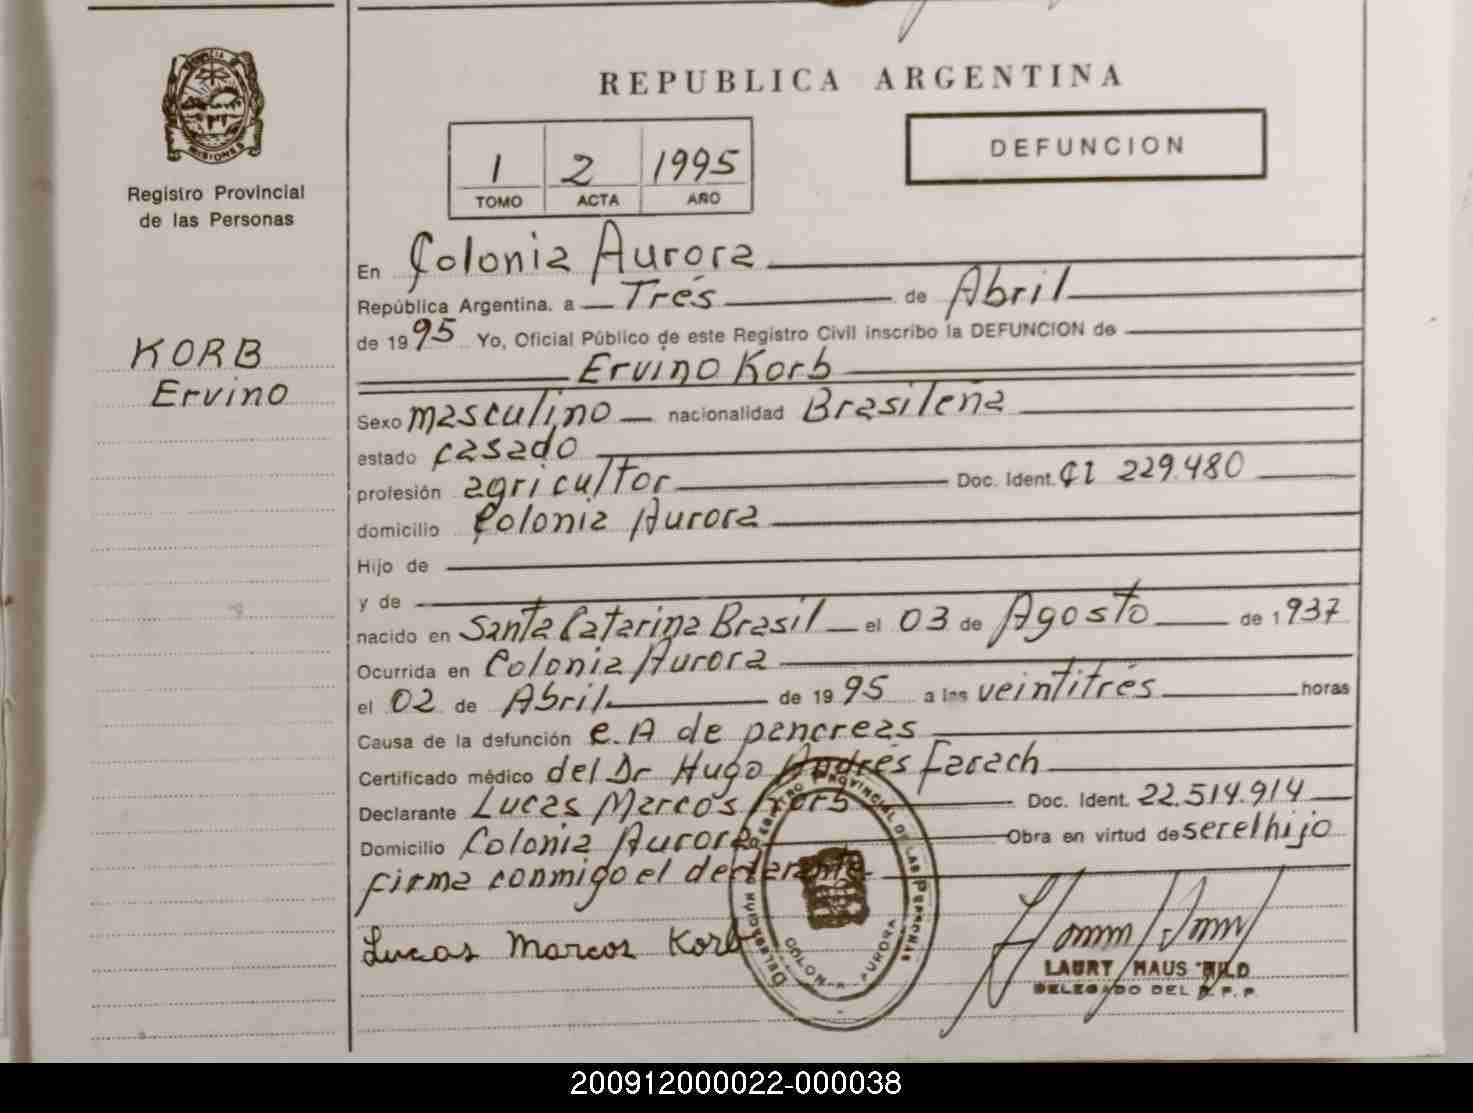 REPUBLICA ARGENTINA
PROVINCIA DE MISIONES
Registro Provincial
de las Personas
DEFUNCION
1 2 1995
TOMO ACTA AÑO
KORB
Ervino
En Colonia Aurora
República Argentina, a Trés de Abril
de 1995 Yo, Oficial Público de este Registro Civil inscribo la DEFUNCION de
Ervino Korb
Sexo masculino nacionalidad Brasileña
estado casado
profesión agricultor Doc. Ident. CI 229.480
domicilio Colonia Aurora
Hijo de
y de
nacido en Santa Catarina Brasil el 03 de Agosto de 1937
Ocurrida en Colonia Aurora
el 02 de Abril de 1995 a las veintitrés horas
Causa de la defunción C.A de pancreas
Certificado médico del Dr Hugo Andrés Farach
Declarante Lucas Marcos Korb Doc. Ident. 22.514.914
Domicilio Colonia Aurora Obra en virtud de ser el hijo
firma conmigo el declarante
Lucas Marcos Korb
DELEGACIÓN DEL REGISTRO PROVINCIAL DE LAS PERSONAS
COLONIA AURORA
DELEGADO DEL R. P. P.
200912000022-000038